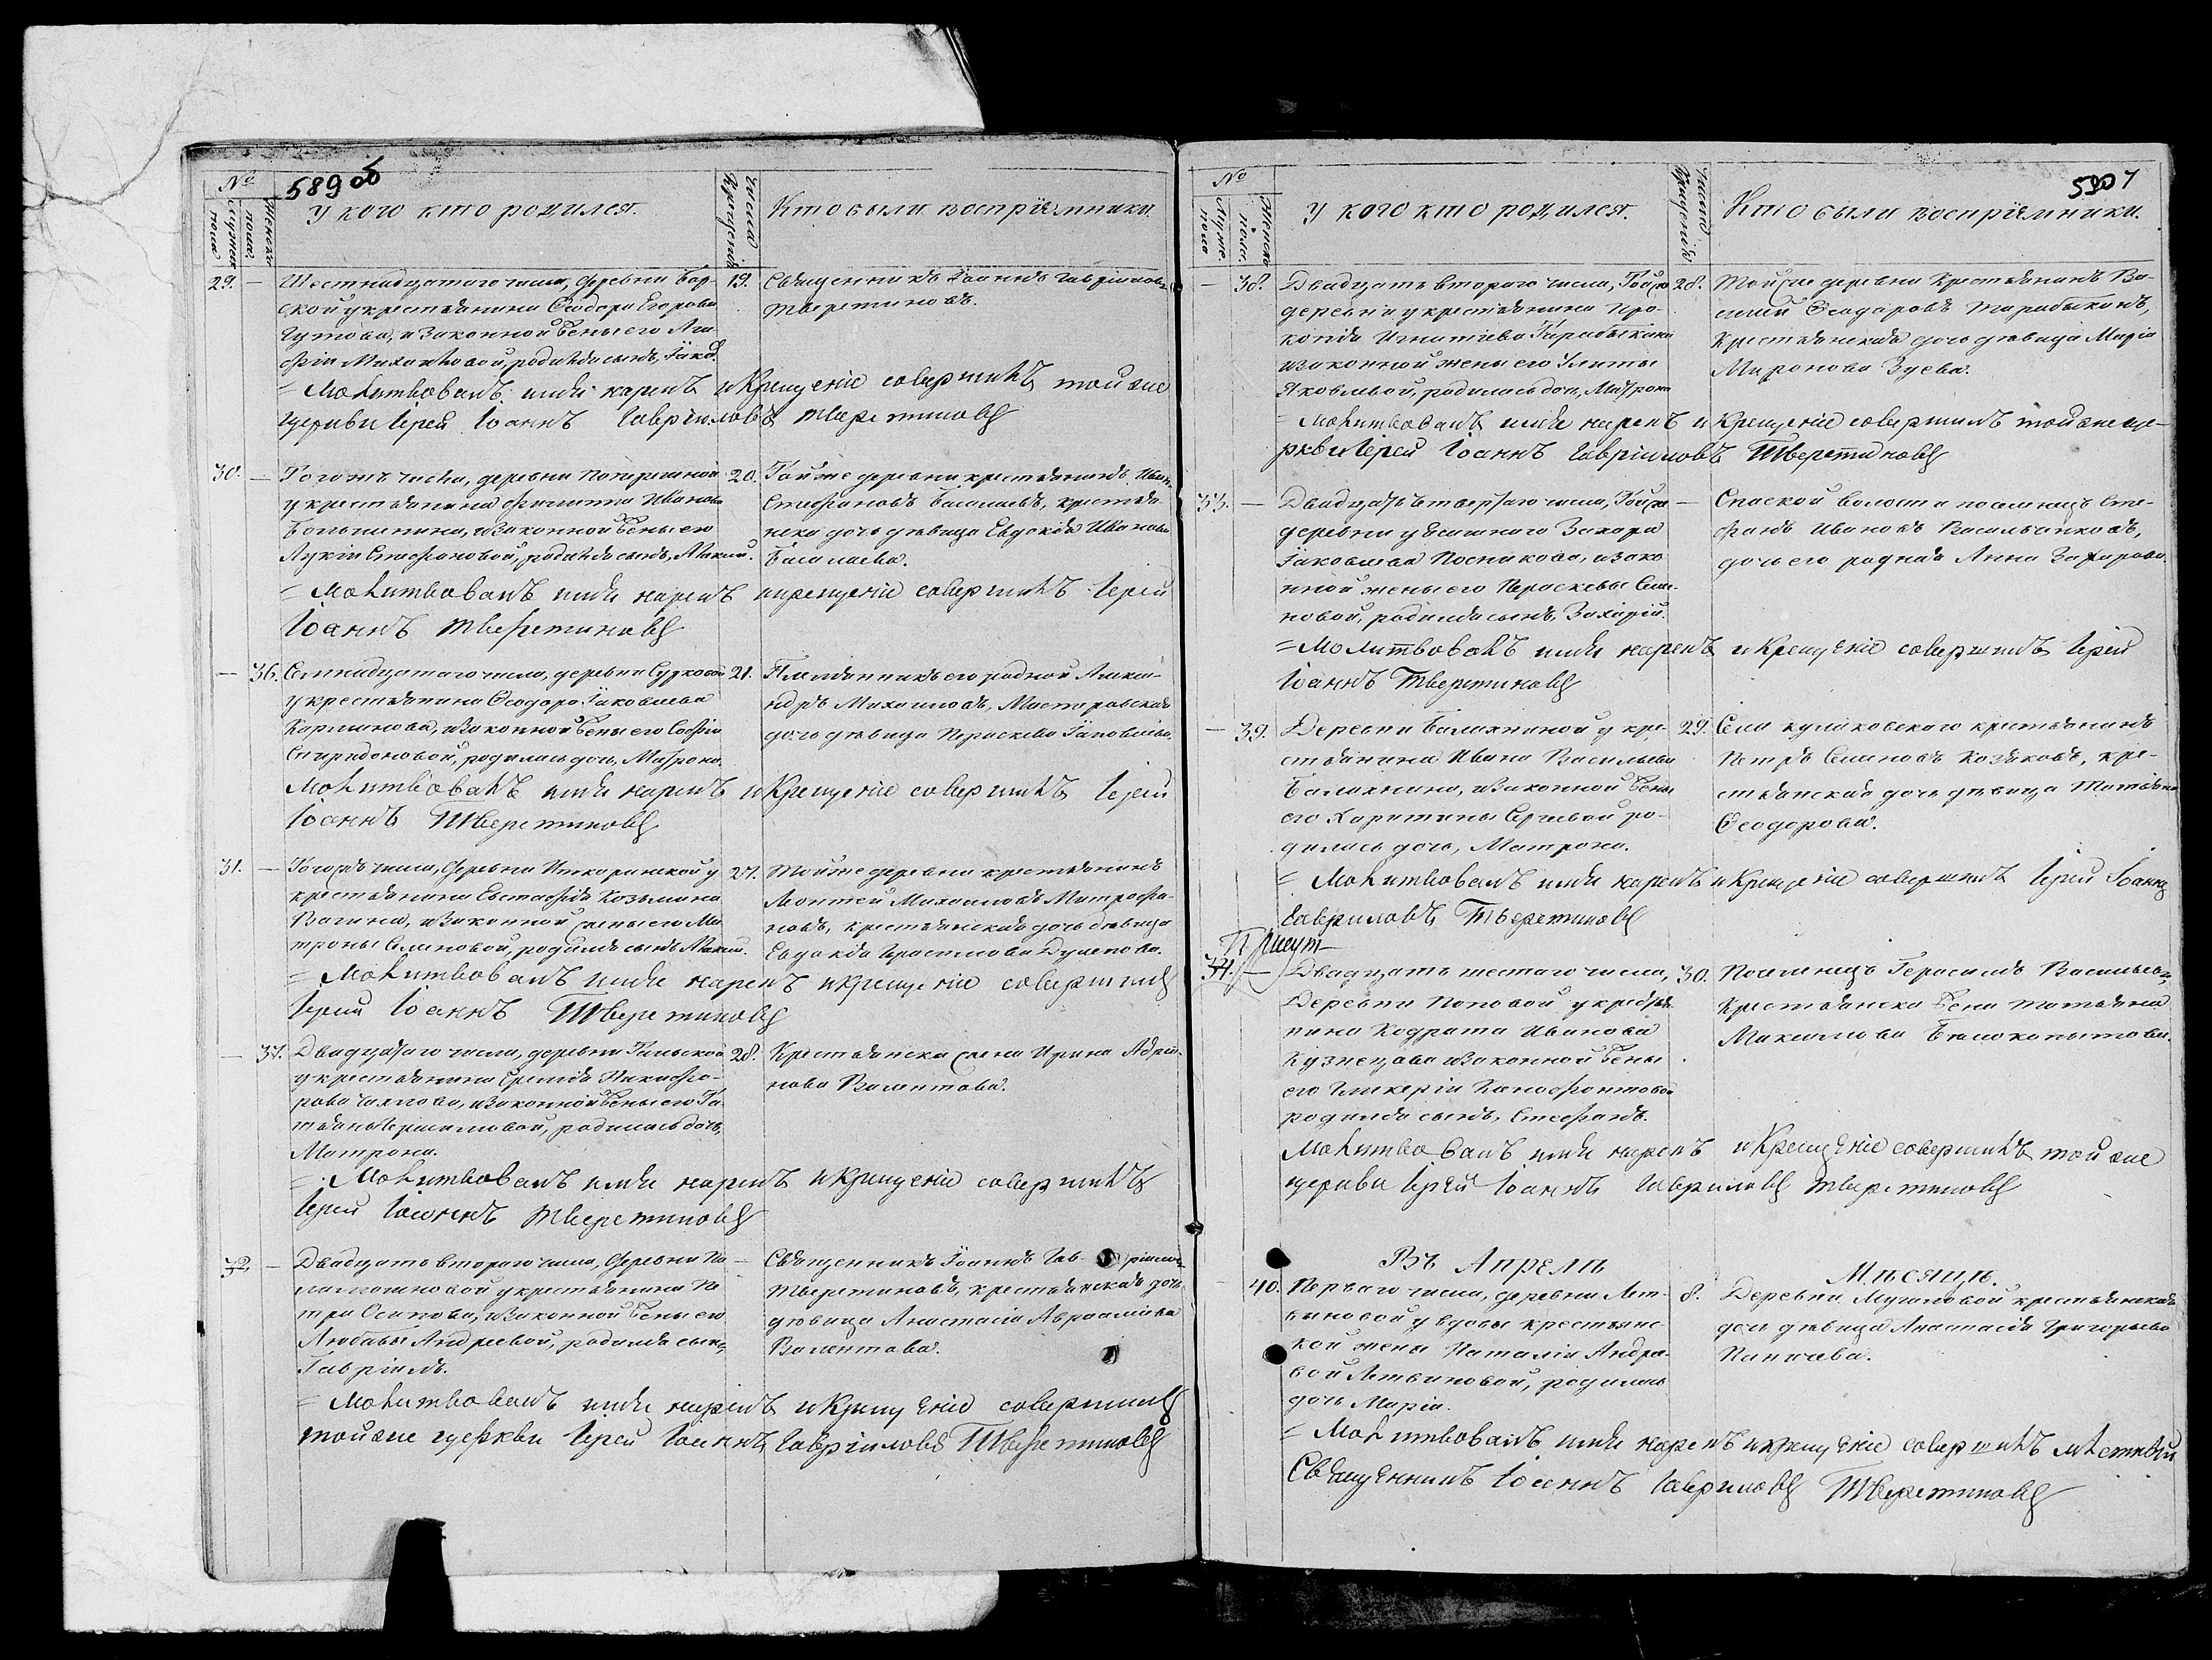 589 об
№
Мужеска
пола
Женска
пола
У кого кто родился.
Числа
Крещенія
Кто были воспріемники.
29. — Шестнадцатого числа, Деревни Бар-
ской у крестьянина Ѳеодора Егорова
и Законной Жены его Ага-
фіи Михайловой, родился сынъ, Іаковъ.
19. Священникъ Іоаннъ Гавріиловъ
Тверетиновъ.
= Молитвовалъ имя нарекъ и Крещеніе совершилъ той же
церкви Іерей Іоаннъ Гавріиловъ Тверетиновъ
30. — Того жъ числа, деревни
у крестьянина Филиппа Иванова
и Законной Жены его
Лукіи Стефановой, родился сынъ, Алексій.
20. Той же деревни крестьянинъ Иванъ
Стефановъ крестьян-
ска дочь дѣвица Евдокія Иванова
= Молитвовалъ имя нарекъ и крещеніе совершилъ Іерей
Іоаннъ Тверетиновъ
— 36. Семнадцатого числа, деревни
у крестьянина Ѳеодора Іаковлева
и Законной Жены его Софіи
Спиридоновой, родилась дочь, Матрона.
21. Племянникъ его родной Алекса-
ндръ Михайловъ,
дочь дѣвица Параскева Іаковлева.
Молитвовалъ имя нарекъ и Крещеніе совершилъ Іерей
Іоаннъ Тверетиновъ
31. — Того жъ числа, Деревни у
крестьянина Евстафія Козьмина
Вагина, и Законной жены его Ма-
троны Семеновой, родился сынъ Алексій.
27. Той же деревни крестьянинъ
Леонтей Михайловъ Митрофа-
новъ, крестьянская дочь дѣвица
Евдокія
= Молитвовалъ имя нарекъ и Крещеніе совершилъ
Іерей Іоаннъ Тверетиновъ
— 37. Двадцатаго числа, деревни
у крестьянина Никифо-
рова и Законной Жены его Та-
тьяны родилась дочь,
Матрона.
28. Крестьянска жена Ирина Адріа-
нова
= Молитвовалъ имя нарекъ и Крещеніе совершилъ
Іерей Іоаннъ Тверетиновъ
32. — Двадцать второго числа, Деревни
у крестьянина Пе-
тра Осипова, и Законной Жены его
Любавы Андреевой, родился сынъ,
Гавріилъ.
— Священникъ Іоаннъ Гавріиловъ
Тверетиновъ, крестьянская дочь
дѣвица Анастасія Авраамова
= Молитвовалъ имя нарекъ и Крещеніе совершилъ
той же церкви Іерей Іоаннъ Гавріиловъ Тверетиновъ
590
№
Муже.
пола
Женска
пола.
У кого кто родился.
Числа
Крещенія
Кто были воспріемники.
— 38. Двадцать второго числа, Той же
деревни у крестьянина Про-
копія Игнатіева Тарабыкина
и законной жены его Улиты
Яковлевой, родилась дочь, Матрона
28. Той же деревни Крестьянинъ Ва-
силій Ѳеодоровъ Тарабыкинъ,
Крестьянская дочь дѣвица Марія
Миронова Зуева.
= Молитвовалъ имя нарекъ и Крещеніе совершилъ той же це-
ркви Іерей Іоаннъ Гавріиловъ Тверетиновъ
33. — Двадцать четвертаго числа, Той же
деревни у Захара
Іаковлева Посникова, и зако-
нной жены его Параскевы Семе-
новой, родился сынъ, Захарій.
— Спаской волости поселенецъ Сте-
фанъ Ивановъ
дочь его родная Анна Захарова.
= Молитвовалъ имя нарекъ и Крещеніе совершилъ Іерей
Іоаннъ Тверетиновъ
— 39. Деревни Балахниной у кре-
стьянина Ивана Васильева
Балахнина, и Законной Жены
его Харитины Сергеевой ро-
дилась дочь, Матрона.
29. Села Кулаковского крестьянинъ
Петръ Семеновъ Козаковъ, кре-
стьянская дочь дѣвица Татьяна
Ѳеодорова.
= Молитвовалъ имя нарекъ и Крещеніе совершилъ Іерей Іоаннъ
Гавриловъ Тверетиновъ
34. — Двадцать шестого числа,
Деревни Поповой у крестья-
нина Кодрата Иванова
Кузнецова и Законной Жены
его Гликеріи Ксенофонтовой
родился сынъ, Стефанъ.
30. Поселенецъ Герасимъ Васильевъ,
Крестьянска Жена Татьяна
Максимова Белокопытова.
Молитвовалъ имя нарекъ и Крещеніе совершилъ той же
церкви Іерей Іоаннъ Гавриловъ Тверетиновъ
Въ Апрелѣ Мѣсяцѣ.
40. Перваго числа, деревни Лет-
виновой у вдовы крестьянс-
кой жены Наталіи Андре-
вой Летвиновой, родилась
дочь Марія.
8. Деревни крестьянская
дочь дѣвица Анастасія Григорьева
= Молитвовалъ имя нарекъ и крещеніе совершилъ мѣстный
Священникъ Іоаннъ Гавриловъ Тверетиновъ